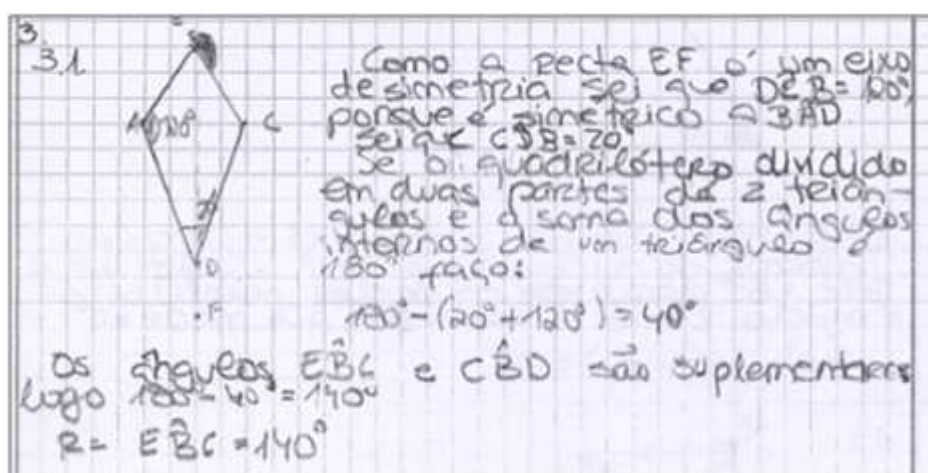 3.
3.1
E
A 120°
C
D
F
Como a recta EF é um eixo
de simetria sei que DĈB = 120°,
porque é simétrico a BÂD.
Sei que CD̂B = 20°
Se o quadrilátero dividido
em duas partes dá 2 triân-
gulos e a soma dos ângulos
internos de um triângulo é
180° faço:
180° - (20° + 120°) = 40°
Os ângulos EB̂C e CB̂D são suplementares
logo 180° - 40° = 140°
R = EB̂C = 140°